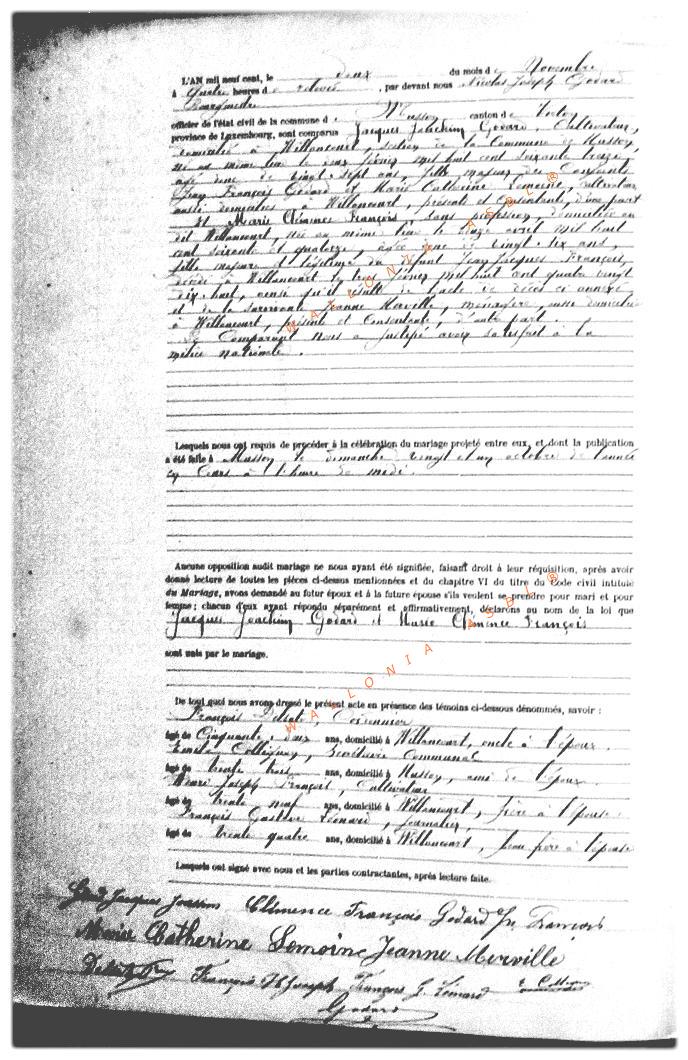 L'AN mil neuf cent, le deux du mois de Novembre
à quatre heures de relevée, par devant nous Nicolas Joseph Godard
Bourgmestre
officier de l'état civil de la commune de Musson canton de Virton
province de Luxembourg, sont comparus Jacques Joachim Godard, Cultivateur,
domicilié à Willancourt, section de la Commune de Musson,
né au même lieu le deux février mil huit cent soixante treize,
âgé donc de vingt-sept ans, fils majeur des Conjoints
Jean François Godard et Marie Catherine Lemoine, cultivateurs
aussi domiciliés à Willancourt, présents et Consentants, d'une part
Et Marie Clémence François, sans profession, domiciliée au
dit Willancourt, née au même lieu le avril mil huit
cent soixante et quatorze, âgée donc de vingt-six ans,
fille majeure et légitime du défunt Jean Jacques François,
décédé à Willancourt le trois février mil huit cent quatre vingt
dix huit, ainsi qu'il résulte de l'acte de décès ci annexé
et de la survivante Jeanne Merville, ménagère, aussi domiciliée
à Willancourt, présente et Consentante, d'autre part.
Le Comparant nous a justifié avoir satisfait à la
milice nationale.
Lesquels nous ont requis de procéder à la célébration du mariage projeté entre eux, et dont la publication
a été faite à Musson le dimanche vingt et un octobre de l'année
en Cours à l'heure de midi.
Aucune opposition audit mariage ne nous ayant été signifiée, faisant droit à leur réquisition, après avoir
donné lecture de toutes les pièces ci-dessus mentionnées et du chapitre VI du titre du Code civil intitulé
du Mariage, avons demandé au futur époux et à la future épouse s'ils veulent se prendre pour mari et pour
femme ; chacun d'eux ayant répondu séparément et affirmativement, déclarons au nom de la loi que
Jacques Joachim Godard et Marie Clémence François
sont unis par le mariage.
De tout quoi nous avons dressé le présent acte en présence des témoins ci-dessous dénommés, savoir :
François
âgé de Cinquante deux ans, domicilié à Willancourt, oncle à l'époux.
Emile Collignon, Secrétaire Communal
âgé de trente trois ans, domicilié à Musson, ami de l'époux.
Henri Joseph François, Cultivateur
âgé de trente neuf ans, domicilié à Willancourt, frère à l'épouse.
François Gustave Léonard, journalier,
âgé de trente quatre ans, domicilié à Willancourt, beau frère à l'épouse
Lesquels ont signé avec nous et les parties contractantes, après lecture faite.
Godard Jacques Joachim Clémence François Godard Jn François
Marie Catherine Lemoine Jeanne Merville
François H Joseph François G. Léonard E Collignon
Godard
WALLONIA ASBL ®
WALLONIA ASBL ®